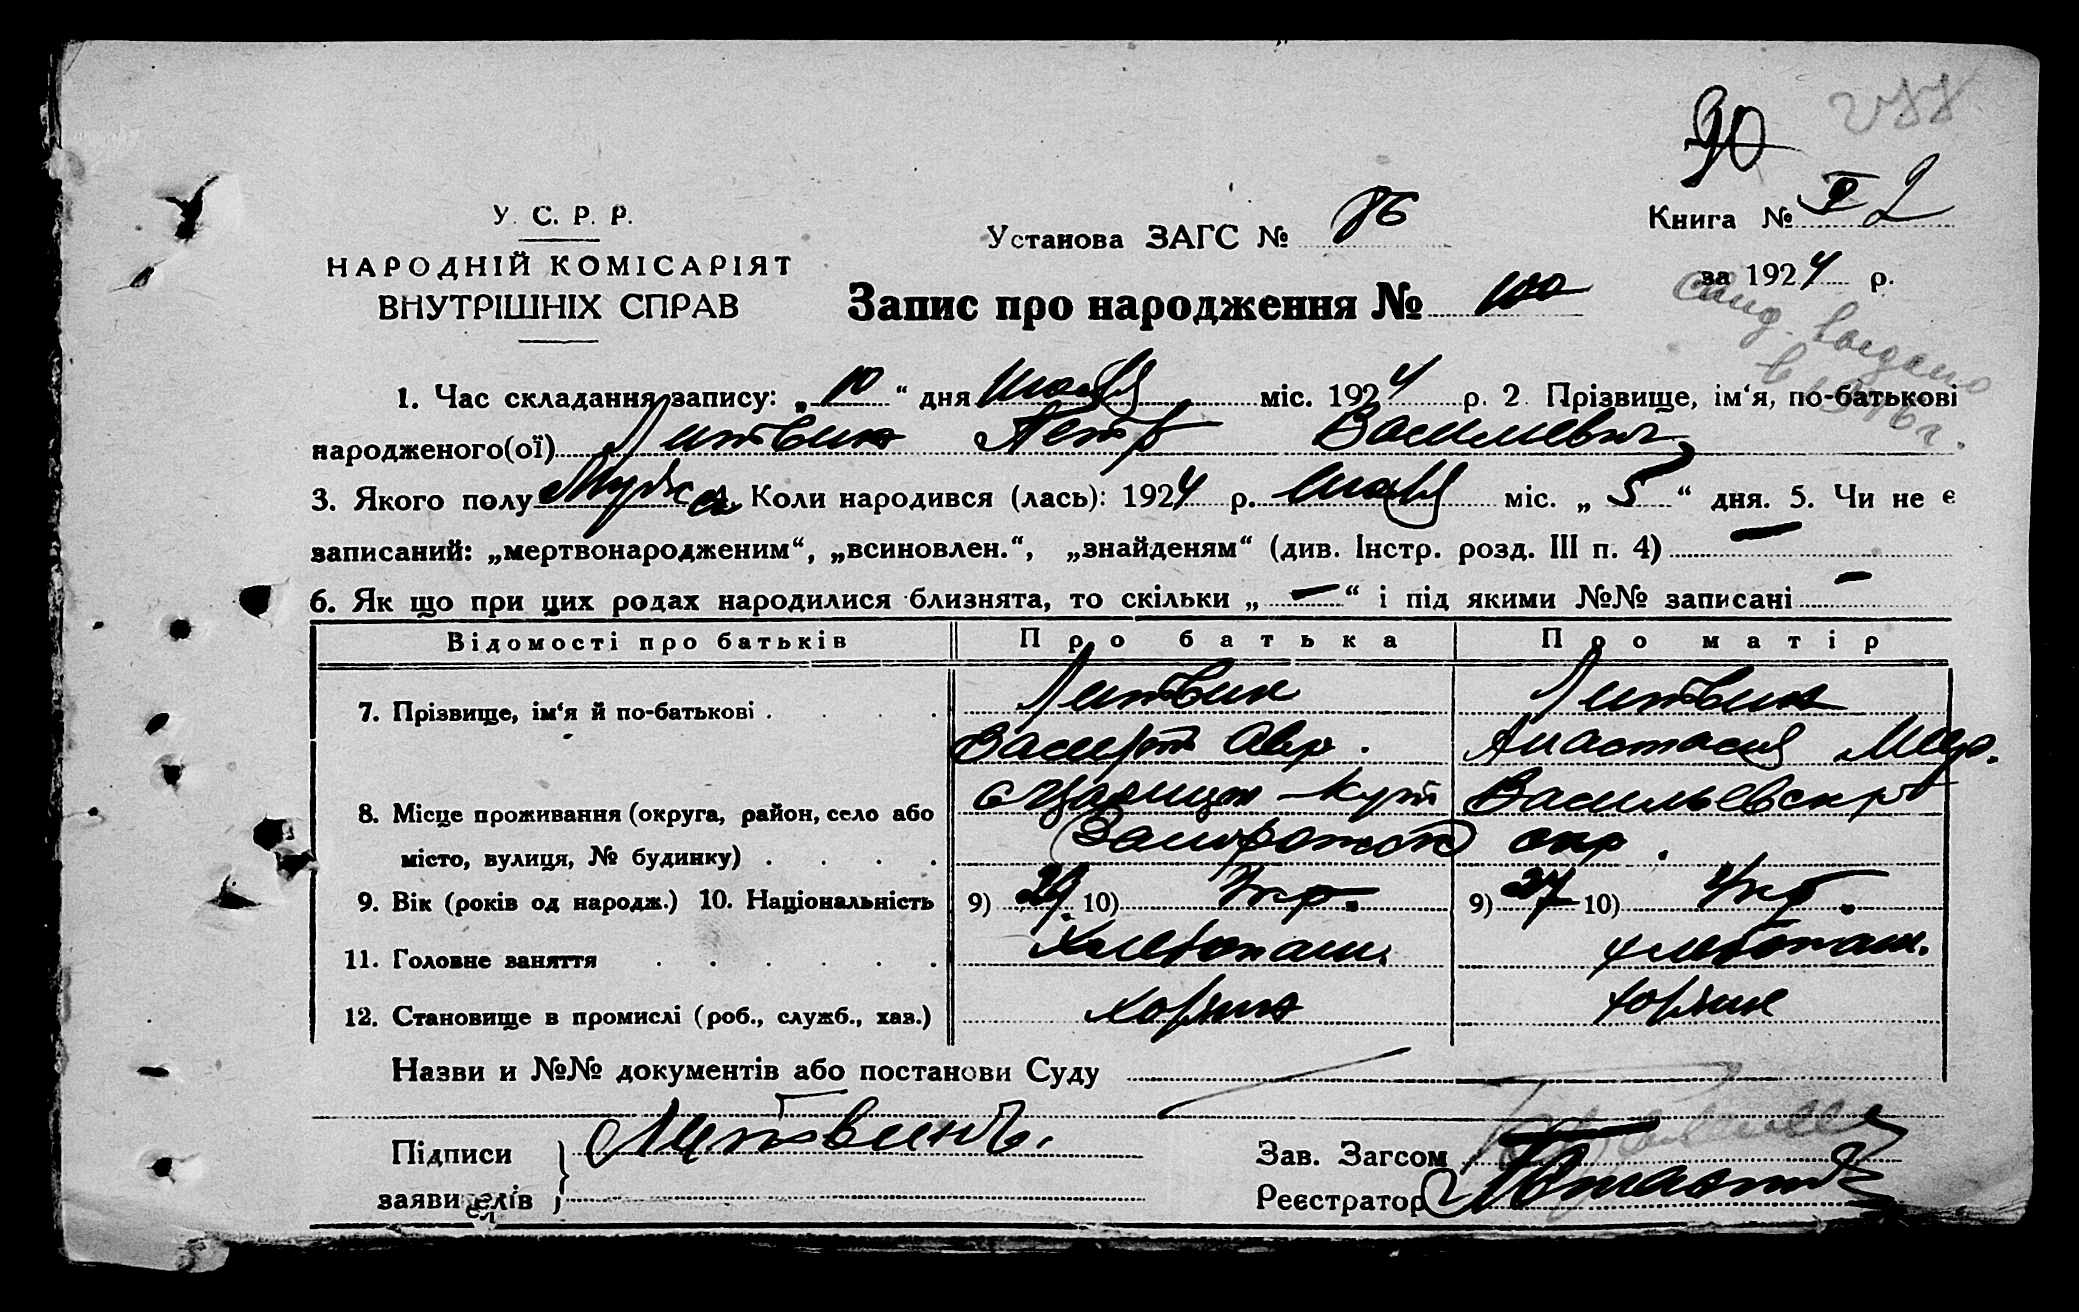 90
У. С. Р. Р.
НАРОДНІЙ КОМІСАРІЯТ
ВНУТРІШНІХ СПРАВ
Установа ЗАГС № 86
Книга № 2
за 1924 р.
Запис про народження № 100
1. Час складання запису: „10“ дня мая міс. 1924 р. 2 Прізвище, ім‘я, по-батькові
народженого(ої) Литвин Петр Василиевич
3. Якого полу Мужс 4. Коли народився (лась): 1924 р. мая міс. „5“ дня. 5. Чи не є
записаний: „мертвонародженим“, „всиновлен.“, „знайденям“ (див. Інстр. розд. III п. 4) —
6. Як що при цих родах народилися близнята, то скільки „—“ і під якими №№ записані —
Відомості про батьків Про батька Про матір
7. Прізвище, ім‘я й по-батькові . . . . Литвин Литвин
Анастасия
8. Місце проживання (округа, район, село або Васильевск
місто, вулиця, № будинку) . . . . Запорожск окр.
9. Вік (років од народж.) 10. Національність 9) 29 10) Укр. 9) 27 10) Укр.
11. Головне заняття . . . . . . Хлебопаш. хлебопаш.
12. Становище в промислі (роб., служб., хаз.) хозяин хозяин
Назви и №№ документів або постанови Суду
Підписи
заявителів
Литвинъ.
Зав. Загсом
Реєстратор